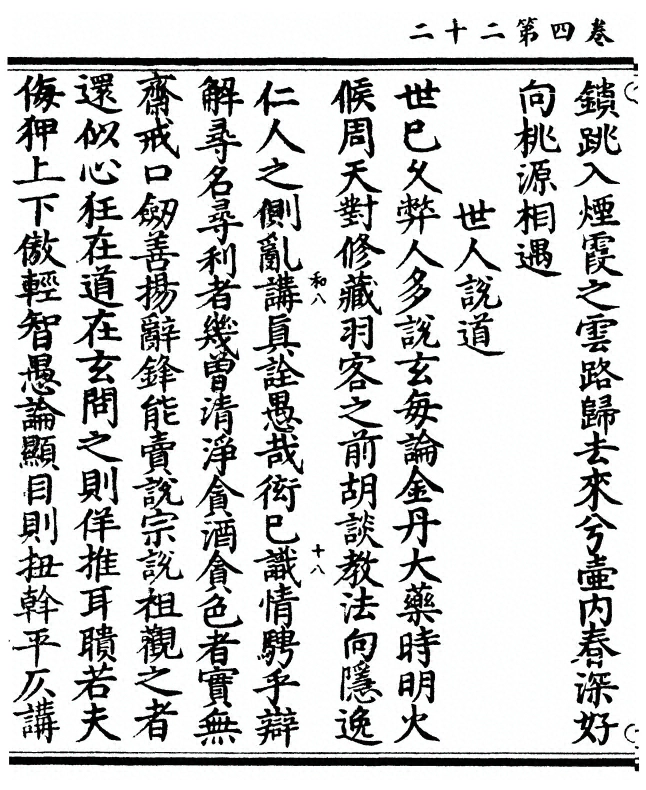 卷四第二十二
鎖跳入煙霞之雲路歸去來兮壷内春深好
向桃源相遇
世人說道
世已久弊人多說玄每論金丹大藥時明火
候周天對修藏羽客之前胡談教法向隱逸
仁人之側亂講眞詮愚哉衒已識情騁乎辯
和八
十八
解尋名尋利者幾曾清淨貪酒貪色者實無
齋戒口劒善揚辭鋒能賣說宗說祖觀之者
還似心狂在道在玄問之則佯推耳聵若夫
侮狎上下傲輕智愚論顯目則扭幹平仄講